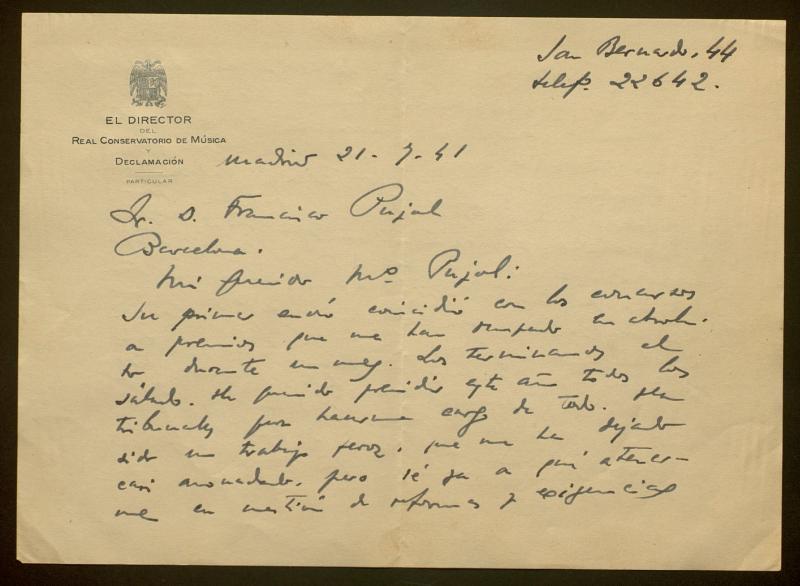 San Bernardo, 44
telef. 22642.
EL DIRECTOR
DEL
REAL CONSERVATORIO DE MÚSICA
Y
DECLAMACIÓN
PARTICULAR
Madrid 21-7-41
Sr. D. Francisco Pujol
Barcelona.
Mi querido Mº Pujol:
Su primer envío coincidió con los concursos
a premios que me han ocupado en absolu-
to durante un mes. Los terminamos el
sábado. He querido presidir este año todos los
tribunales para hacerme cargo de todo. Ha
sido un trabajo feroz, que me ha dejado
casi anonadado, pero sé ya a qué atener-
me en cuestión de reformas y exigencias